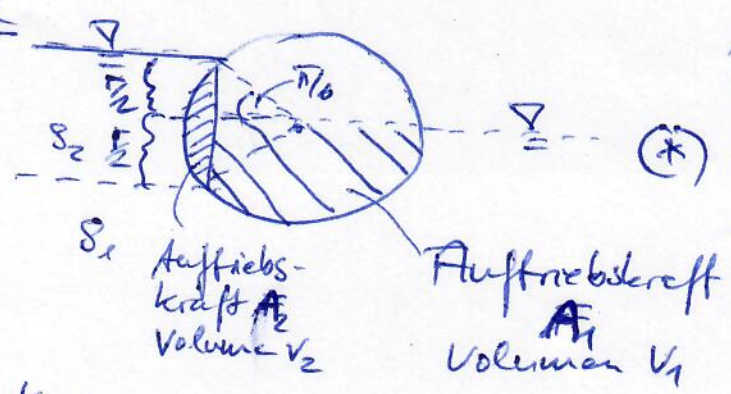 π/6
r/2
r/2
ρ₂
(*)
ρ₁
Auftriebs-
kraft A₂
Volumen V₂
Auftriebskraft
A₁
Volumen V₁